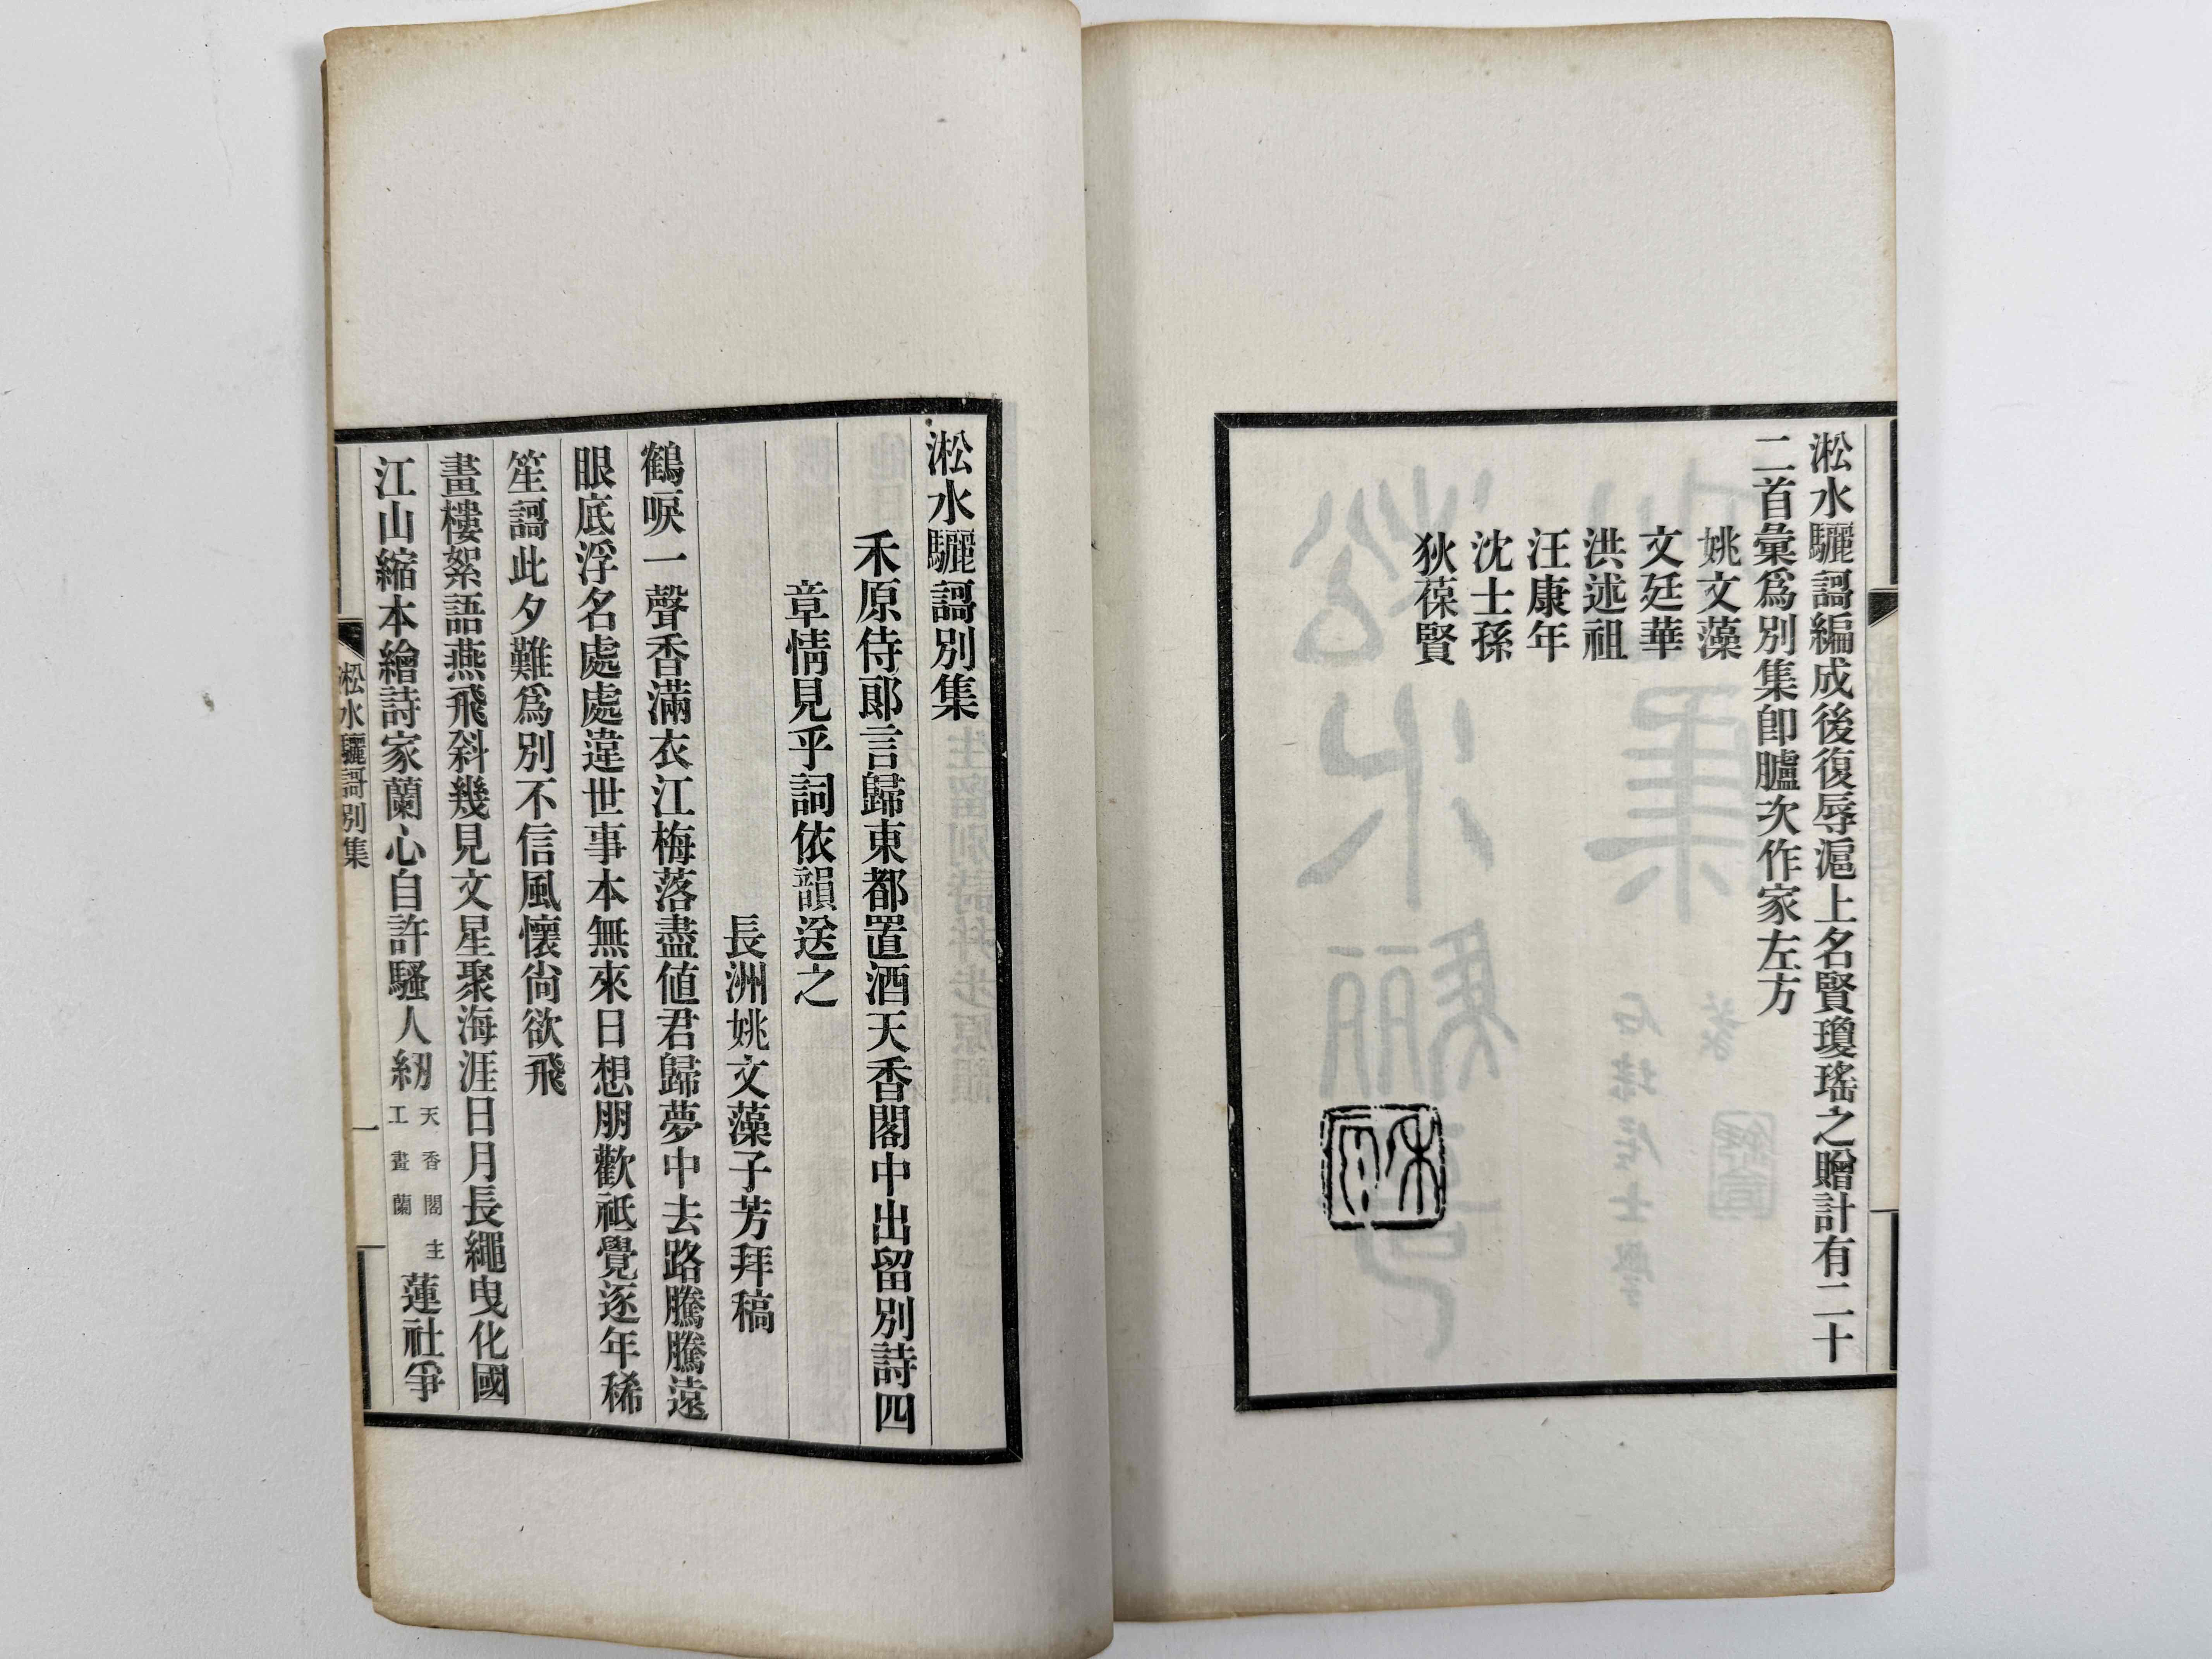 淞水驪謌編成後復辱滬上名賢瓊瑤之贈計有二十
二首彙爲別集卽臚次作家左方
姚文藻
文廷華
洪述祖
汪康年
沈士孫
狄葆賢
淞水驪謌別集
禾原侍郞言歸東都置酒天香閣中出留別詩四
章情見乎詞依韻送之
長洲姚文藻子芳拜稿
鶴唳一聲香滿衣江梅落盡値君歸夢中去路騰騰遠
眼底浮名處處違世事本無來日想朋歡祗覺逐年稀
笙謌此夕難爲別不信風懷尙欲飛
畫樓絮語燕飛斜幾見文星聚海涯日月長繩曳化國
江山縮本繪詩家蘭心自許騷人紉天香閣主工畫蘭蓮社爭
淞水驪謌別集
一